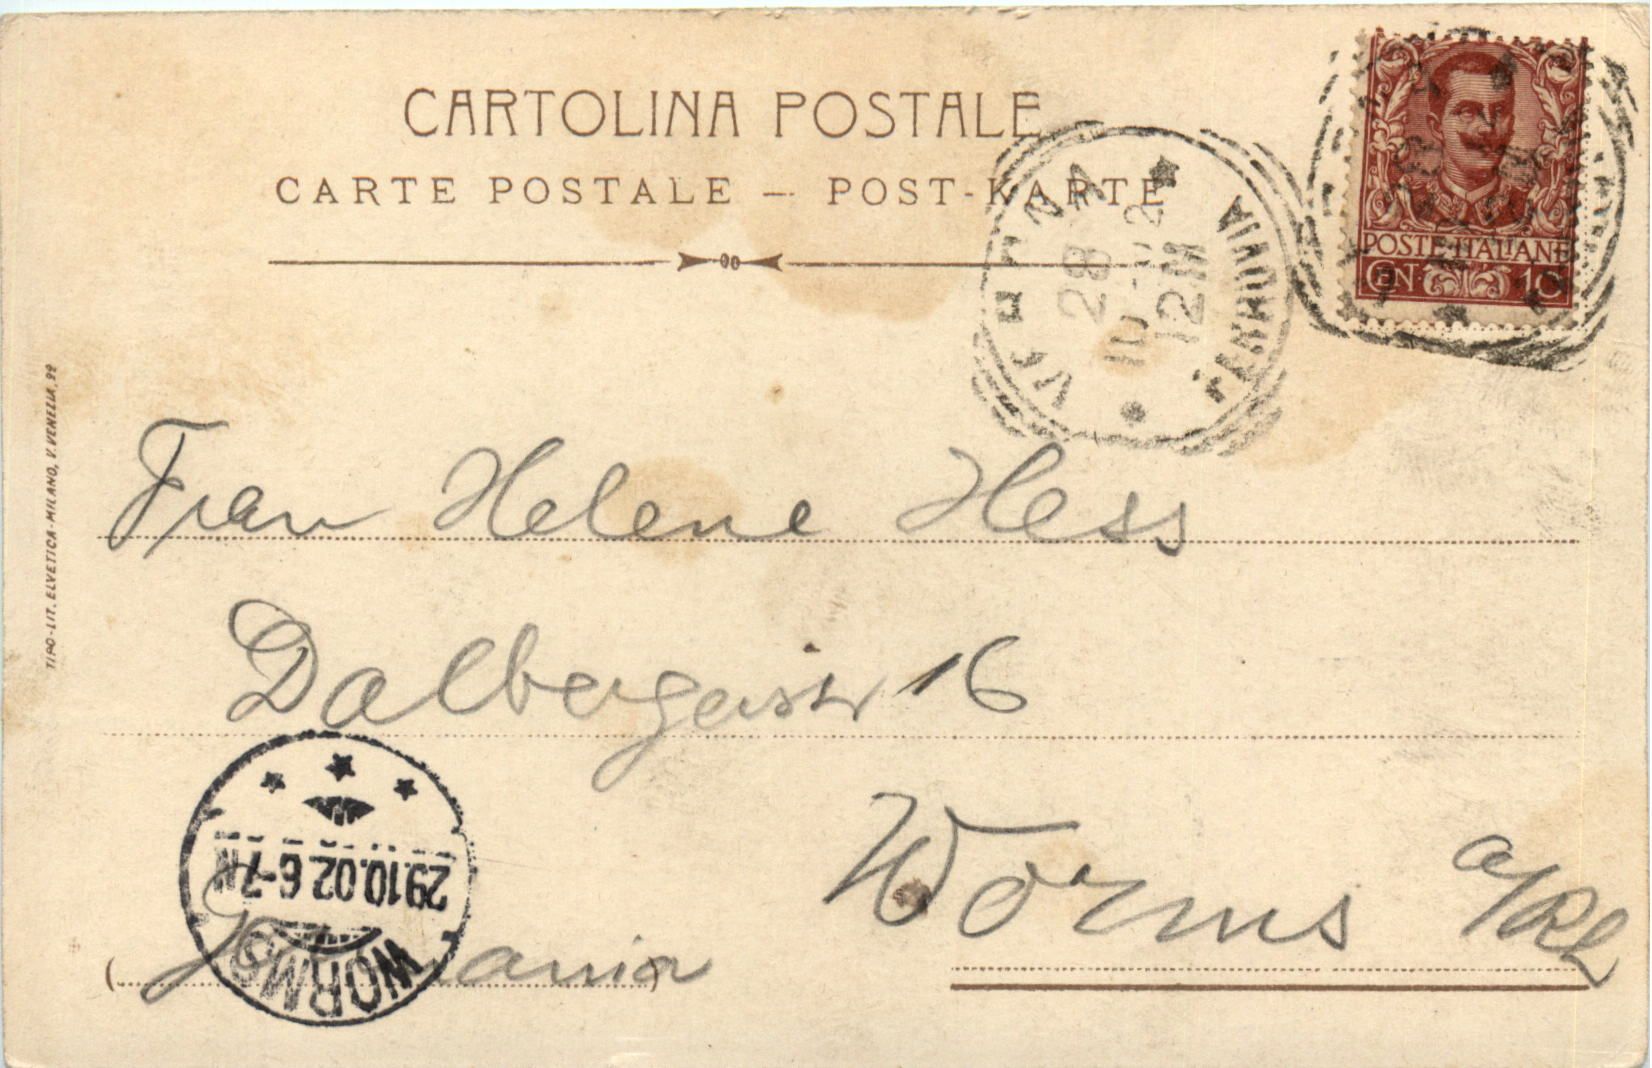 CARTOLINA POSTALE
CARTE POSTALE — POST-KARTE
POSTE ITALIANE
CEN 10
VERONA
28
10-02
12M
FERROVIA
TIPO-LIT. ELVETICA-MILANO, V. VENEZIA, 22
Frau Helene Hess
Dalbergerstr 16
Worms a/Rh
Germania
WORMS
29.10.02.6-7N